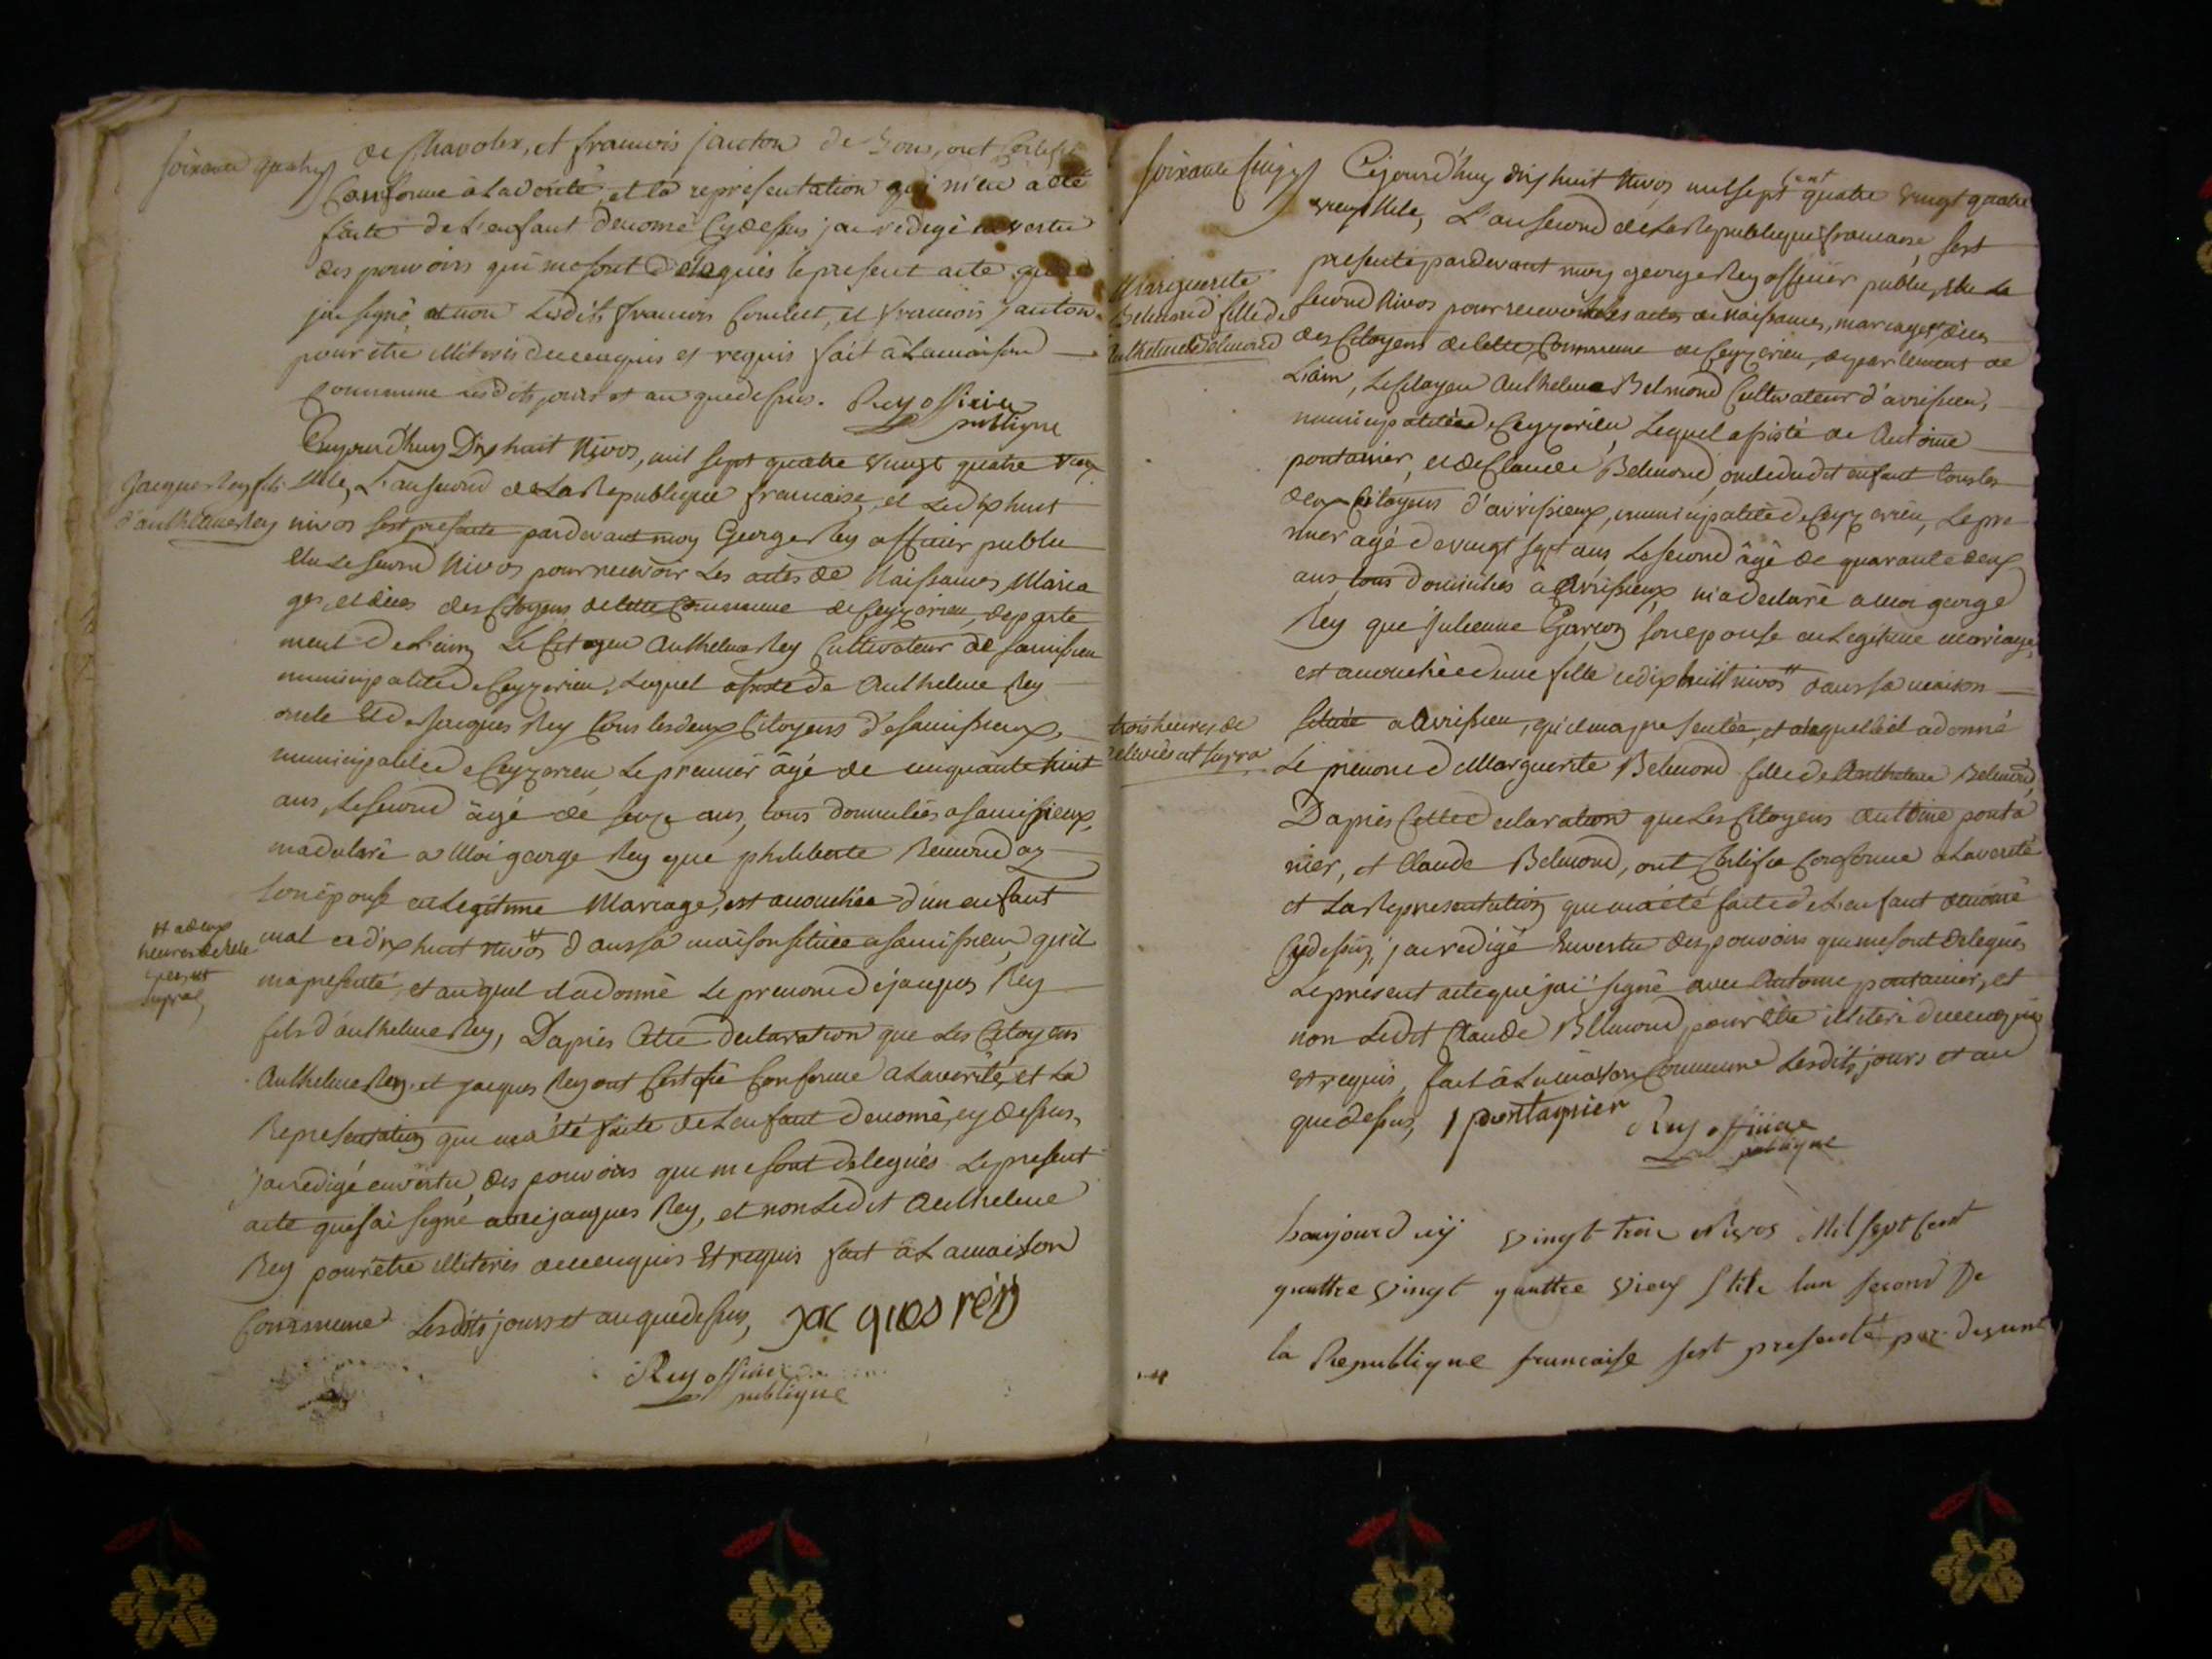 soixante quatre
de Chavolex, et francois janton de Sous, ont Certifié
Conforme à La verité, et la representation qui m'en a eté
faite de L'enfant denomé Cydessus jai redigé en vertu
des pouvoirs qui me sont delegués le present acte que
jai signé, et non Lesdits francois Coulet, et francois janton
pour être illiterés de ce enquis et requis fait à La maison
Commune Lesdits jours et an que dessus. Rey officier
publique
Cejourd'huy Dix huit Nivos, mil sept quatre Vingt quatre vieux
Jacque Rey fils
d'anthelme Rey
stile, L'an second de La Republique francaise, et Le dix huit
nivos sest presenté pardevant moy George Rey officier public
Elu Le second Nivos pour recevoir Les actes de Naissances, Maria
ges, et déces des Citoyens de cette Commune de Ceyzerieu, departe
ment de L'ain Le Citoyen Anthelme Rey Cultivateur de Samissieu
municipalité de Ceyzerieu, Lequel assisté de Anthelme Rey
oncle Et de Jacques Rey tous les deux Citoyens de Samissieux,
municipalité de Ceyzerieu Le premier âgé de cinquante huit
ans, Le second âgé de seize ans, tous domiciliés a Samissieux,
ma declaré a Moi george Rey que philiberte
son épouse en Legitime Mariage, est accouchée d'un enfant
mal ce dix huit nivos dans sa maison située a Samissieu, qu'il
et a deux
heures de
ut
supra
ma presenté, et au quel il a donné Le prenom de jacques Rey
fils d'anthelme Rey, Dapres Cette declaration que Les Citoyens
Anthelme Rey, et jacques Rey ont Certifié Conforme a La verité, et La
Representation que ma été faite de L'enfant denomé, cy dessus,
j'ai redigé en vertu, des pouvoirs que me sont delegués Le present
acte que jai signé avec jacques Rey, et non Ledit Anthelme
Rey pour être illiterés de ce enquis Et requis fait à La maison
Commune Lesdits jours et an que dessus, jac ques rey
Rey officier
publique
soixante cinq
Cejourd'huy dix huit Nivos, mil sept cent quatre vingt quatre
vieux stile, L'an second de La Republique francaise, sest
presenté pardevant moy george Rey officier public, Elu Le
Marguerite
Belmond fille de
Anthelme Belmond
second Nivos pour recevoir Les actes de naissances, mariages, déces
des Citoyens de cette Commune de Ceyzerieu, departement de
L'ain, Le Citoyen Anthelme Belmond Cultivateur d'avrissieu,
municipalité de Ceyzerieu, Lequel assisté de Antoine
pontanier, et de Claude Belmond, oncle dudit enfant tous les
deux Citoyens d'avrissieux, municipalité de Ceyzerieu, Le pre
mier agé de vingt sept ans, Le second âgé de quarante deux
ans, tous domiciliés à Avrissieux, m'a declaré a moi george
Rey que julienne Garcon son epouse en Legitime mariage,
est accouchée d'une fille ce dix huit nivos dans sa maison
trois heures de
relevée ut supra
située a Avrissieu, qu'il ma presentée, et a laquelle il a donné
Le prenom de Marguerite Belmond fille de Anthelme Belmond,
Dapres Cette declaration que Les Citoyens Antoine ponta
nier, et Claude Belmond, ont Certifié Conforme a La verité
et La Representation que ma été faite de L'enfant denomé
Cydessus, j'ai redigé En vertu des pouvoirs que me sont delegués
Le present acte que jai signé avec Antoine pontanier, et
non Ledit Claude Belmond pour être illiteré de ce enquis
Et requis, fait à La maison Commune Lesdits jours et an
que dessus, pontagnier Rey officier
publique
vingt trois Nivos Mil sept Cent
quattre vingt quattre vieux stile lan second De
la Republique francaise sest presenté par devant